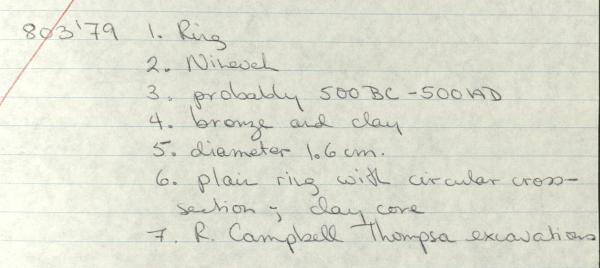 803'79 1. Ring
2. Nineveh
3. probably 500 BC - 500 AD
4. bronze and clay
5. diameter 1.6 cm.
6. plain ring with circular cross-
section; clay core
7. R. Campbell Thompson excavations